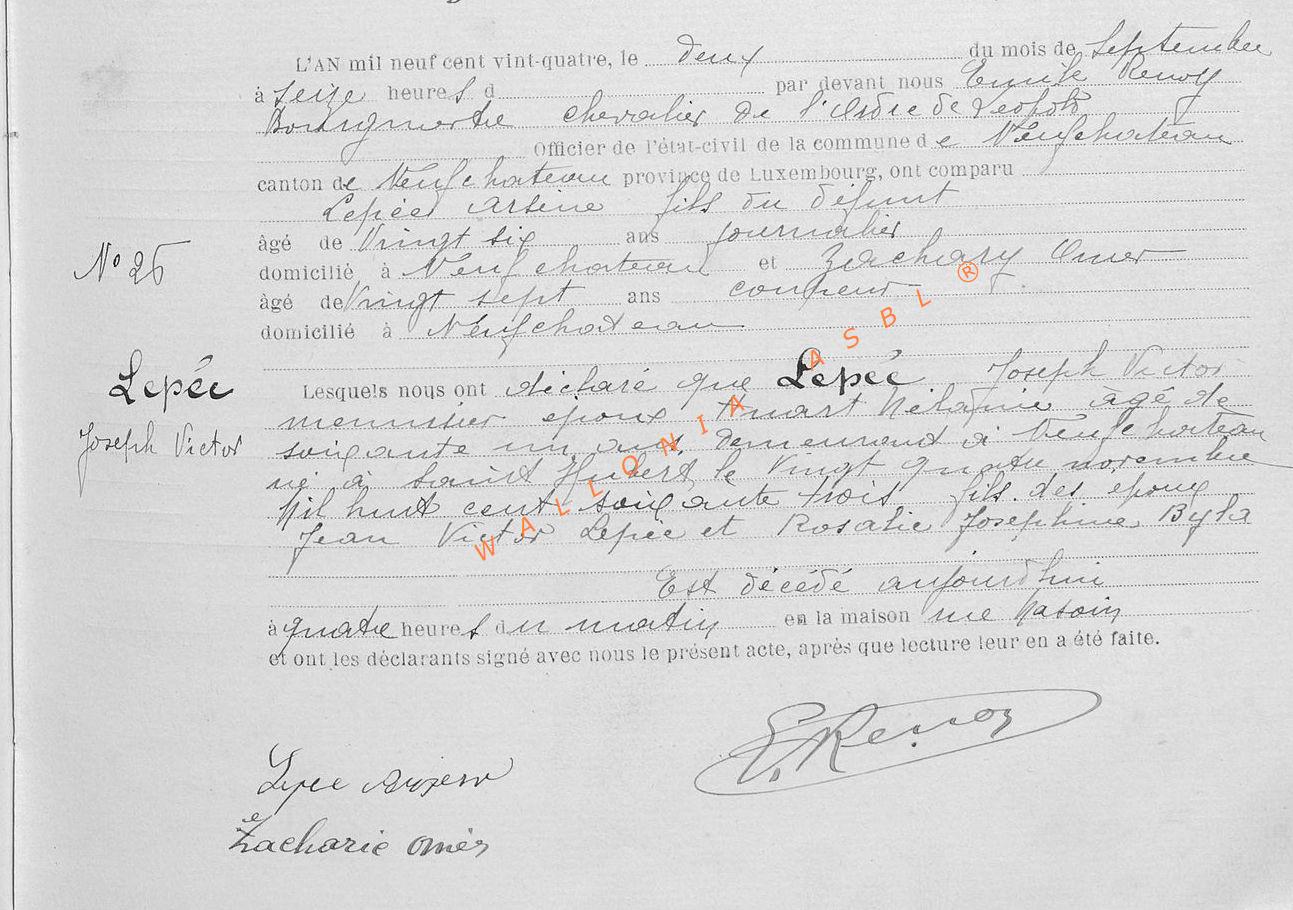 L'AN mil neuf cent vint-quatre, le deux du mois de Septembre
à seize heures d par devant nous Emile Renoy
Bourgmestre chevalier de l'Ordre de Léopold
Officier de l'état-civil de la commune de Neufchateau
canton de Neufchateau province de Luxembourg, ont comparu
Lepée Arsène fils du défunt
âgé de Vingt six ans journalier
domicilié à Neufchateau et Zachary Omer
N° 26
âgé de Vingt sept ans
domicilié à Neufchateau
Lepée
Joseph Victor
Lesquels nous ont déclaré que Lepée Joseph Victor
menuisier époux Mélanie âgé de
soixante un ans demeurant à Neufchateau
né à Saint Hubert le Vingt quatre novembre
Mil huit cent soixante trois fils des époux
Jean Victor Lepée et Rosalie Josephine Byla
Est décédé aujourd'hui
à quatre heures du matin en la maison rue
et ont les déclarants signé avec nous le présent acte, après que lecture leur en a été faite.
E. Renoy
Lepee
Zacharie Omer
WALLONIA ASBL ®